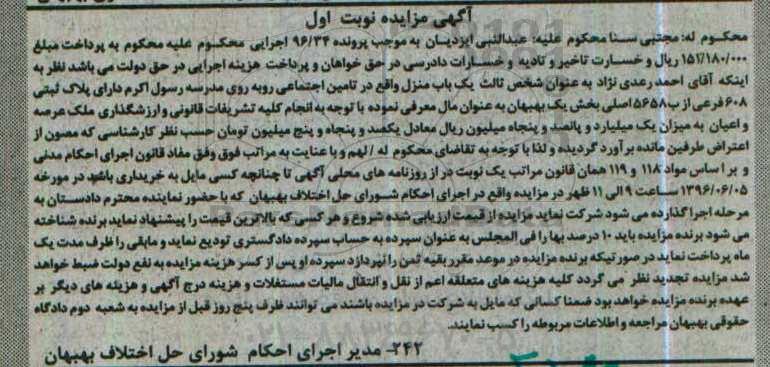 آگهی مزایده نوبت اول
محکوم له: مجتبی سنا محکوم علیه: عبدالنبی ایزدیان به موجب پرونده ۹۶/۳۴ اجرایی محکوم علیه محکوم به پرداخت مبلغ
۱۵۱/۱۸۰/۰۰۰ ریال و خسارت تاخیر و تادیه و خسارات دادرسی در حق خواهان و پرداخت هزینه اجرایی در حق دولت می باشد نظر به
اینکه آقای احمد رعدی نژاد به عنوان شخص ثالث یک باب منزل واقع در تامین اجتماعی روبه روی مدرسه رسول اکرم دارای پلاک ثبتی
۶۰۸ فرعی از ب۵۶۵۸ اصلی بخش یک بهبهان به عنوان مال معرفی نموده با توجه به انجام کلیه تشریفات قانونی و ارزشگذاری ملک عرصه
و اعیان به میزان یک میلیارد و پانصد و پنجاه میلیون ریال معادل یکصد و پنجاه و پنج میلیون تومان حسب نظر کارشناسی که مصون از
اعتراض طرفین مانده برآورد گردیده و لذا با توجه به تقاضای محکوم له / لهم و با عنایت به مراتب فوق وفق مفاد قانون اجرای احکام مدنی
و بر اساس مواد ۱۱۸ و ۱۱۹ همان قانون مراتب یک نوبت در از روزنامه های محلی آگهی تا چنانچه کسی مایل به خریداری باشد در مورخه
۱۳۹۶/۰۶/۰۵ ساعت ۹ الی ۱۱ ظهر در مزایده واقع در اجرای احکام شورای حل اختلاف بهبهان که با حضور نماینده محترم دادستان به
مرحله اجرا گذارده می شود شرکت نماید مزایده از قیمت ارزیابی شده شروع و هر کسی که بالاترین قیمت را پیشنهاد نماید برنده شناخته
می شود برنده مزایده باید ۱۰ درصد بها را فی المجلس به عنوان سپرده به حساب سپرده دادگستری تودیع نماید و مابقی را ظرف مدت یک
ماه پرداخت نماید در صورتیکه برنده مزایده در موعد مقرر بقیه ثمن را نپردازد سپرده او پس از کسر هزینه مزایده به نفع دولت ضبط خواهد
شد مزایده تجدید نظر می گردد کلیه هزینه های متعلقه اعم از نقل و انتقال مالیات مستغلات و هزینه درج آگهی و هزینه های دیگر بر
عهده برنده مزایده خواهد بود ضمنا کسانی که مایل به شرکت در مزایده باشند می توانند ظرف پنج روز قبل از مزایده به شعبه دوم دادگاه
حقوقی بهبهان مراجعه و اطلاعات مربوطه را کسب نمایند.
۲۴۲- مدیر اجرای احکام شورای حل اختلاف بهبهان